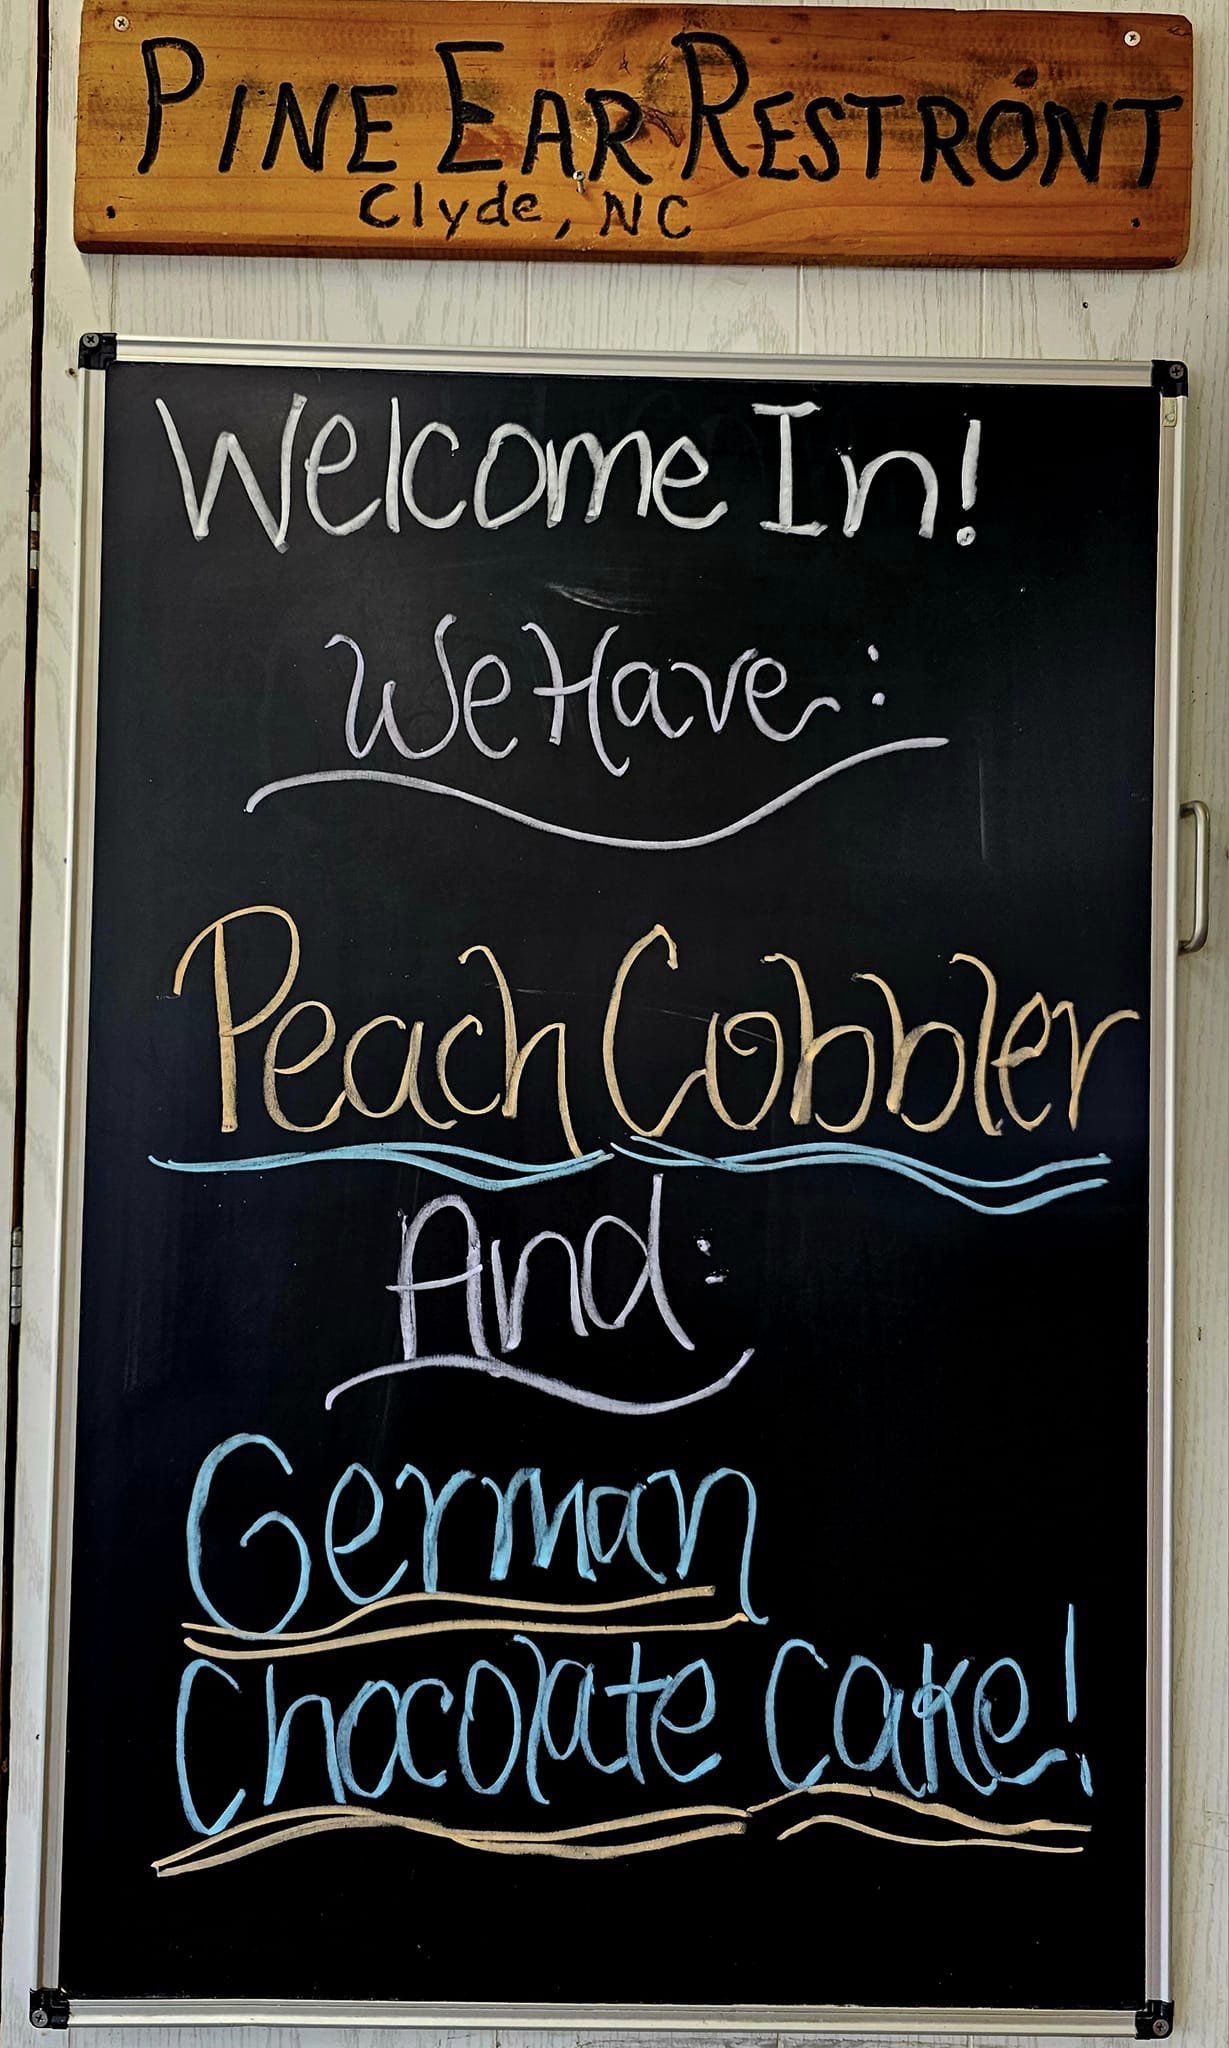 PINE EAR RESTRONT
Clyde, NC
Welcome In!
We Have:
Peach Cobbler
And:
German
Chocolate Cake!